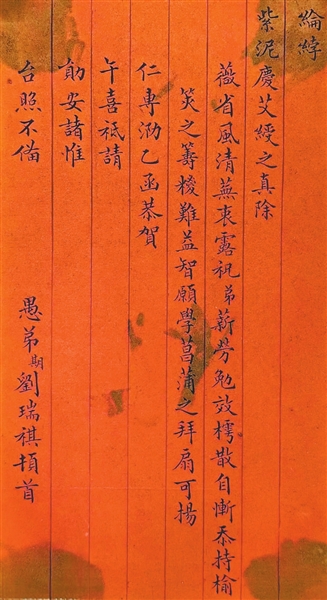 綸綍
紫泥慶艾綬之真除
薇省風清蕪衷露祝弟薪勞勉效樗散自慚忝持榆
莢之籌糉難益智願學菖蒲之拜扇可揚
仁專泐乙函恭賀
午喜祗請
勛安諸惟
台照不備
愚弟期劉瑞祺頓首